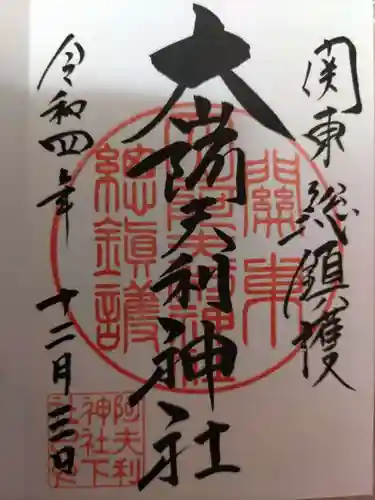 関東総鎮護
大山阿夫利神社
令和四年十二月三日
關東
總鎮護
阿夫利
神社下